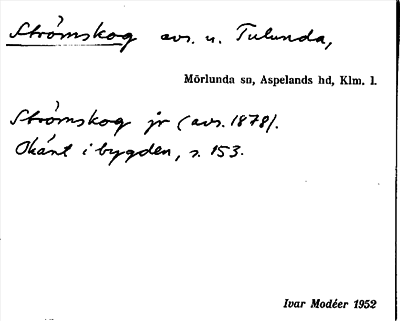 Strömskog avs. u. Tulunda,
Mörlunda sn, Aspelands hd, Klm. l.
Strömskog jr (avs. 1878).
Okänt i bygden, s. 153.
Ivar Modéer 1952